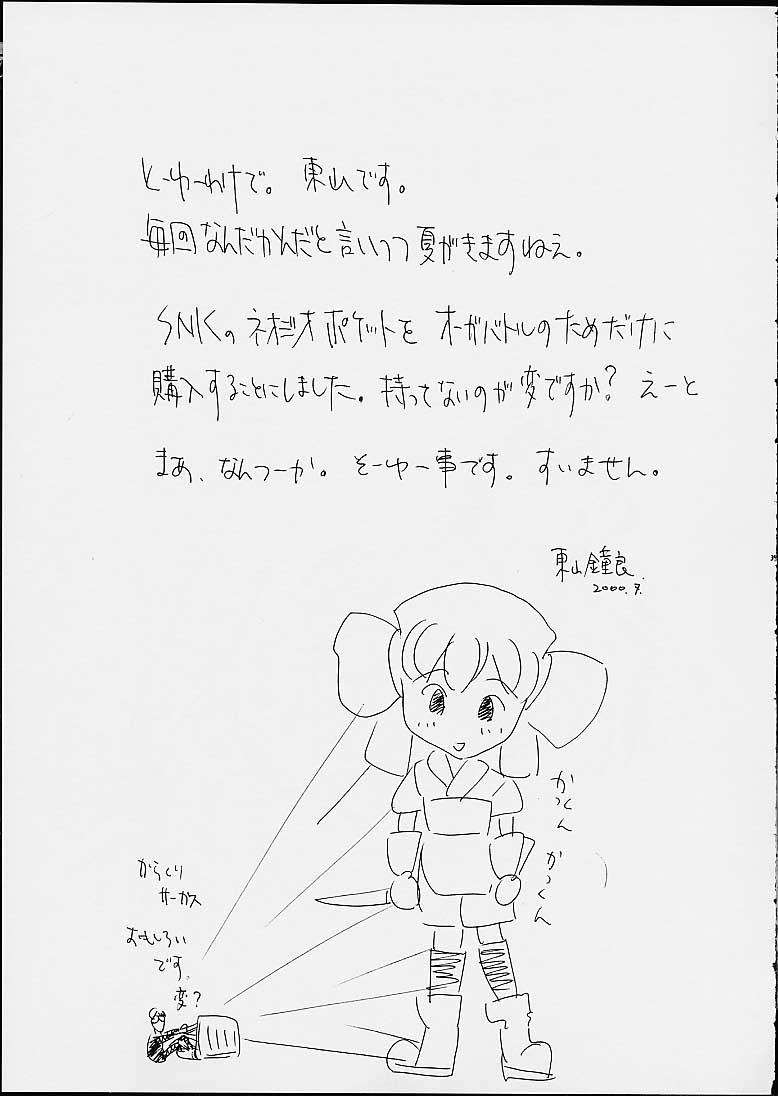 とーゆーわけで。東山です。
毎回なんだかんだと言いつつ夏がきますねぇ。
SNKのネオジオポケットをオーガバトルのためだけに
購入することにしました。持ってないのが変ですか？えーと
まあ、なんつーか。そーゆー事です。すいません。
東山鐘良
2000.7.
かっくん
かっくん
からくり
サーカス
おもしろい
です。
変？